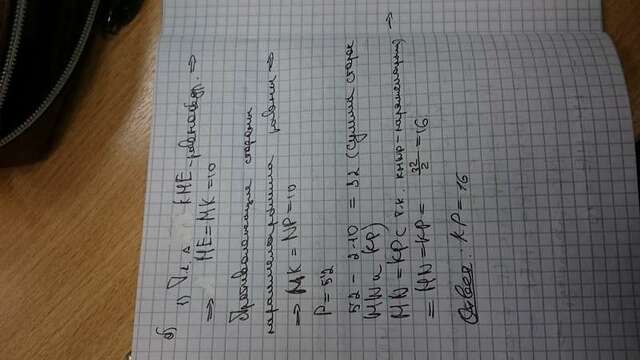 б)
1) Т.к. Δ KME - равнобедр. ⇒
⇒ ME = MK = 10
Противолежащие стороны
параллелограмма равны ⇒
⇒ MK = NP = 10
P = 52
52 - 2·10 = 32 (сумма сторон
MN и KP)
MN = KP (т.к. KMNP - параллелограмм) ⇒
= MN = KP = 32/2 = 16
Ответ: KP = 16